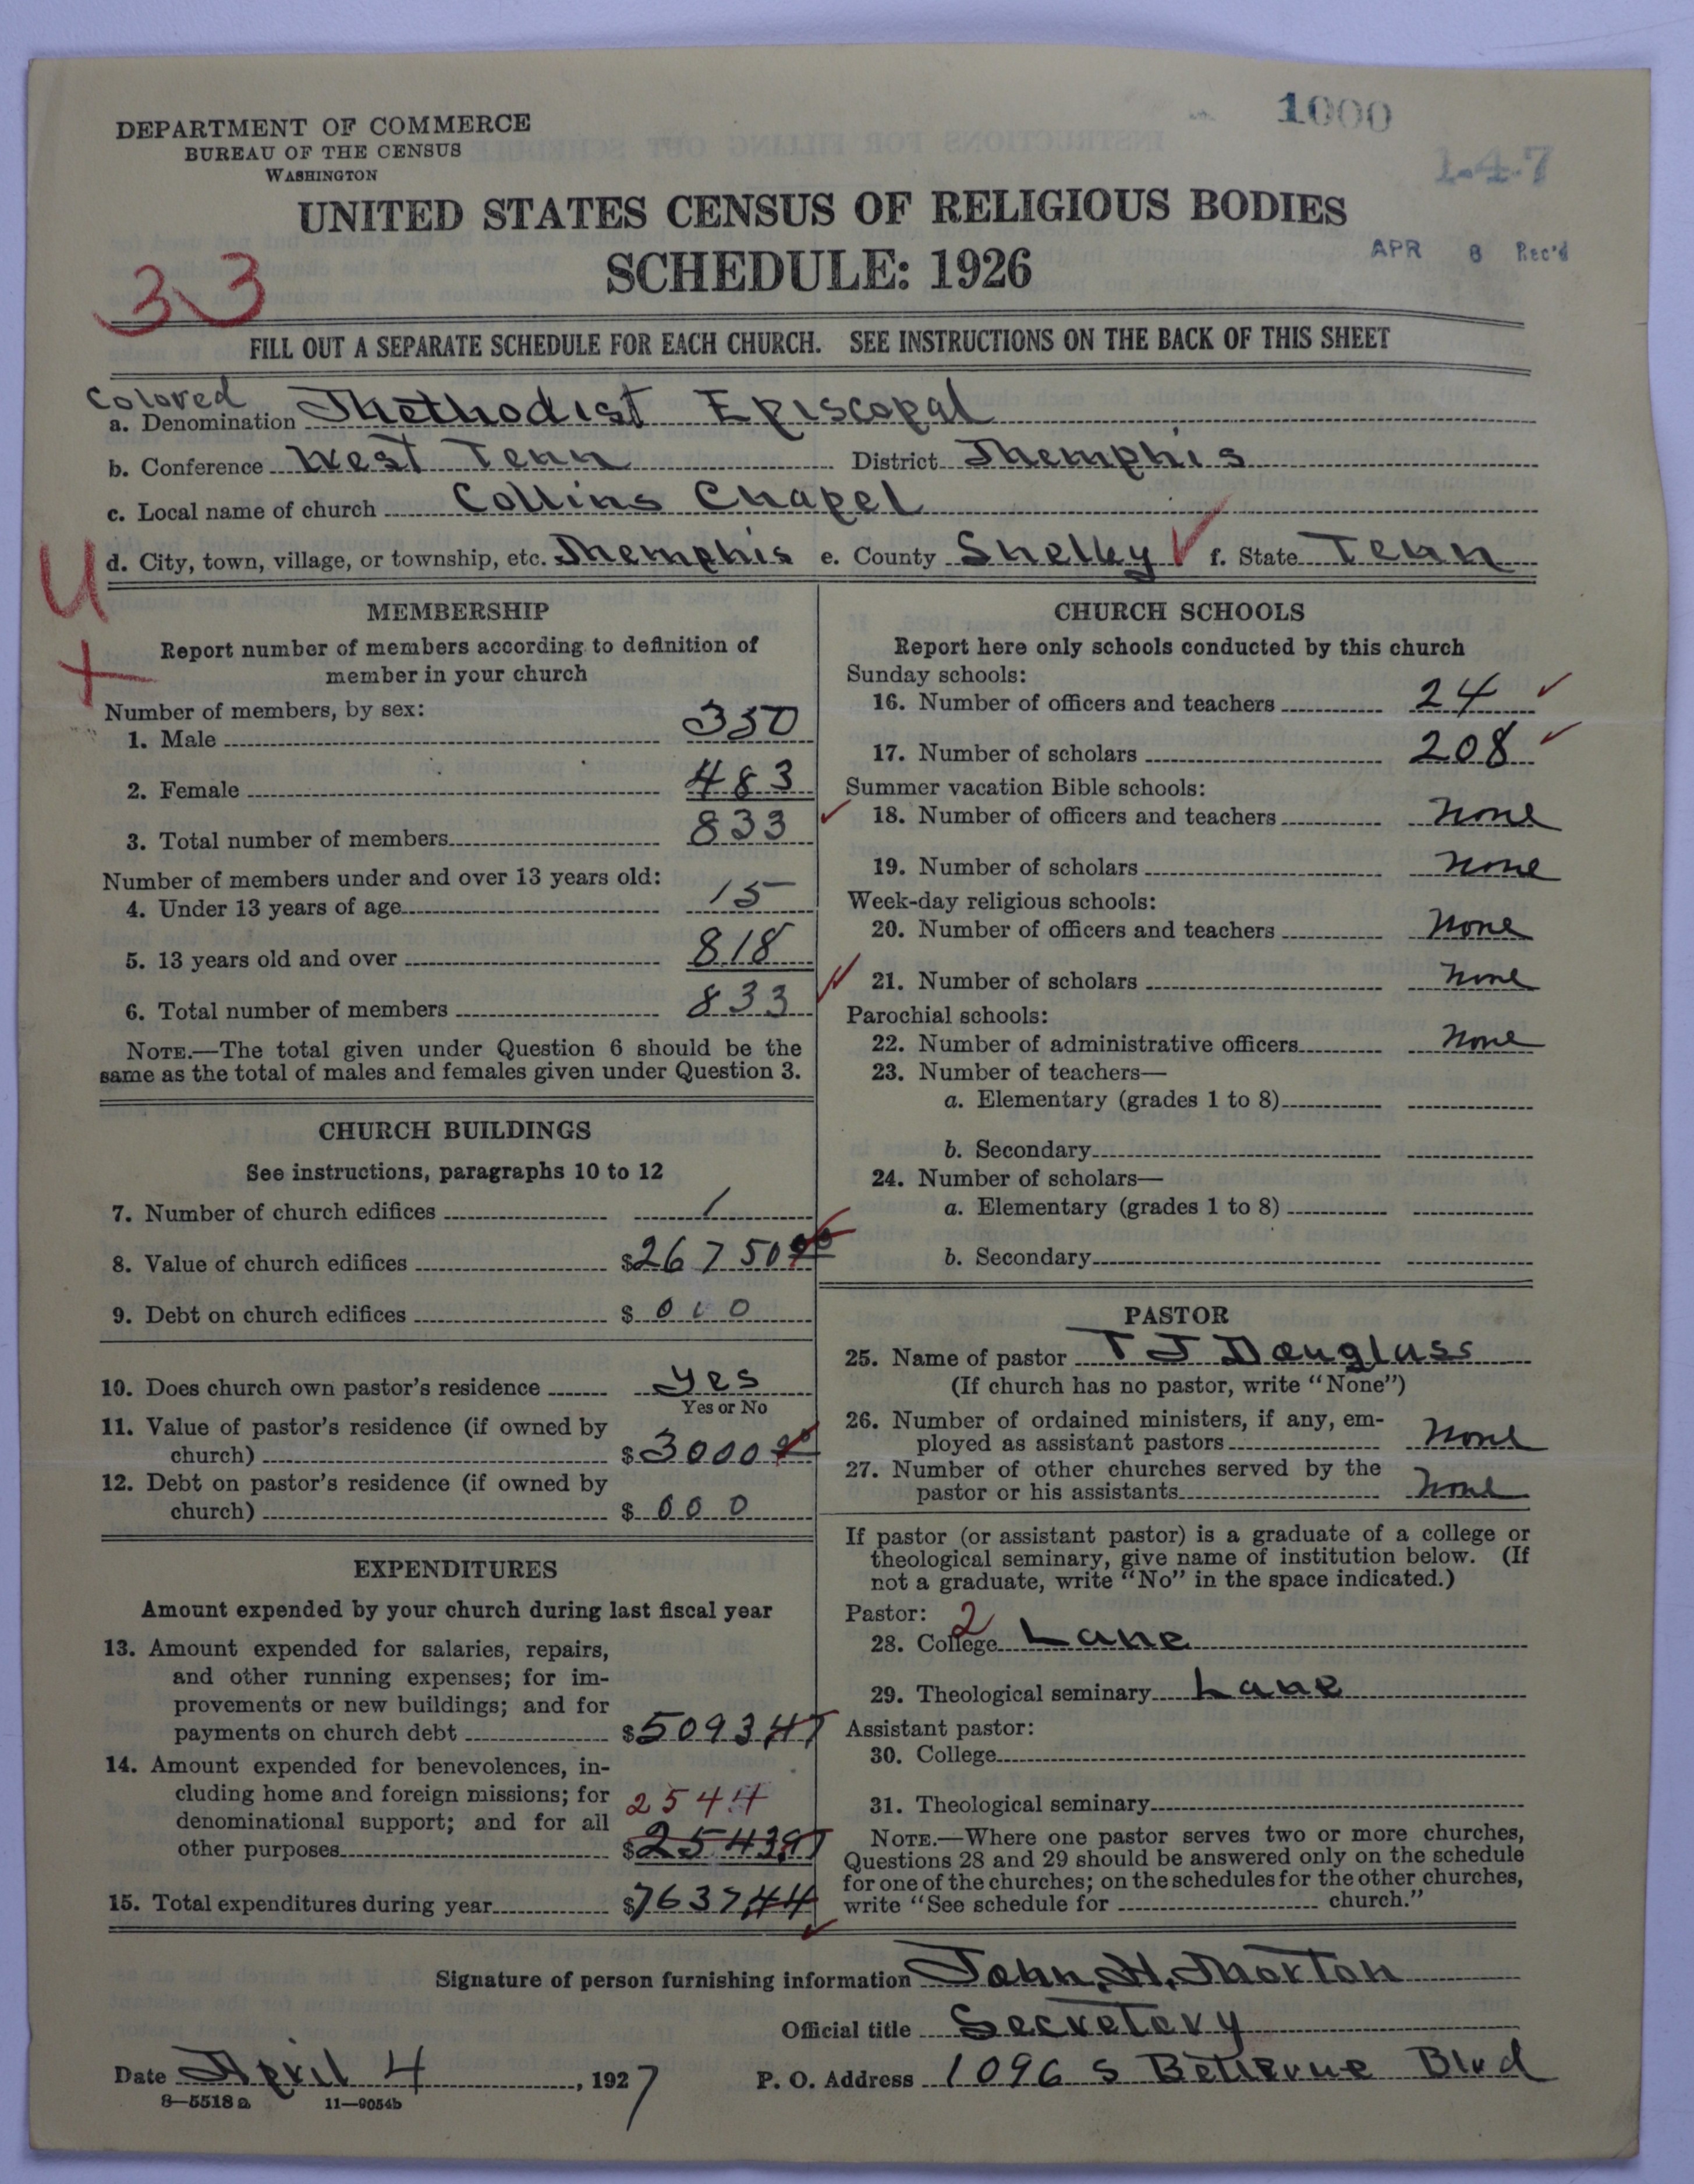 1000
1-4-7
DEPARTMENT OF COMMERCE
BUREAU OF THE CENSUS
WASHINGTON
UNITED STATES CENSUS OF RELIGIOUS BODIES
SCHEDULE: 1926
APR 8 Rec'd
33
FILL OUT A SEPARATE SCHEDULE FOR EACH CHURCH. SEE INSTRUCTIONS ON THE BACK OF THIS SHEET
Colored
a. Denomination Methodist Episcopal
b. Conference West Tenn District Memphis
c. Local name of church Collins Chapel
d. City, town, village, or township, etc. Memphis e. County Shelby f. State Tenn
U
+
MEMBERSHIP
Report number of members according to definition of
member in your church
Number of members, by sex:
1. Male 350
2. Female 483
3. Total number of members 833
Number of members under and over 13 years old:
4. Under 13 years of age 15
5. 13 years old and over 818
6. Total number of members 833
NOTE.—The total given under Question 6 should be the
same as the total of males and females given under Question 3.
CHURCH BUILDINGS
See instructions, paragraphs 10 to 12
7. Number of church edifices 1
8. Value of church edifices $26750 00
9. Debt on church edifices $000
10. Does church own pastor's residence Yes
Yes or No
11. Value of pastor's residence (if owned by
church) $3000 00
12. Debt on pastor's residence (if owned by
church) $000
EXPENDITURES
Amount expended by your church during last fiscal year
13. Amount expended for salaries, repairs,
and other running expenses; for im-
provements or new buildings; and for
payments on church debt $5093 47
14. Amount expended for benevolences, in-
cluding home and foreign missions; for
denominational support; and for all
2544
other purposes $2543 97
15. Total expenditures during year $7637 44
CHURCH SCHOOLS
Report here only schools conducted by this church
Sunday schools:
16. Number of officers and teachers 24
17. Number of scholars 208
Summer vacation Bible schools:
18. Number of officers and teachers None
19. Number of scholars None
Week-day religious schools:
20. Number of officers and teachers None
21. Number of scholars None
Parochial schools:
22. Number of administrative officers None
23. Number of teachers—
a. Elementary (grades 1 to 8)
b. Secondary
24. Number of scholars—
a. Elementary (grades 1 to 8)
b. Secondary
PASTOR
25. Name of pastor T J Douglass
(If church has no pastor, write "None")
26. Number of ordained ministers, if any, em-
ployed as assistant pastors None
27. Number of other churches served by the
pastor or his assistants None
If pastor (or assistant pastor) is a graduate of a college or
theological seminary, give name of institution below. (If
not a graduate, write "No" in the space indicated.)
Pastor: 2
28. College Lane
29. Theological seminary Lane
Assistant pastor:
30. College
31. Theological seminary
NOTE.—Where one pastor serves two or more churches,
Questions 28 and 29 should be answered only on the schedule
for one of the churches; on the schedules for the other churches,
write "See schedule for church."
Signature of person furnishing information John H. Morton
Official title Secretery
Date April 4, 1927 P. O. Address 1096 S Bellevue Blvd
8—5518a 11—9054b